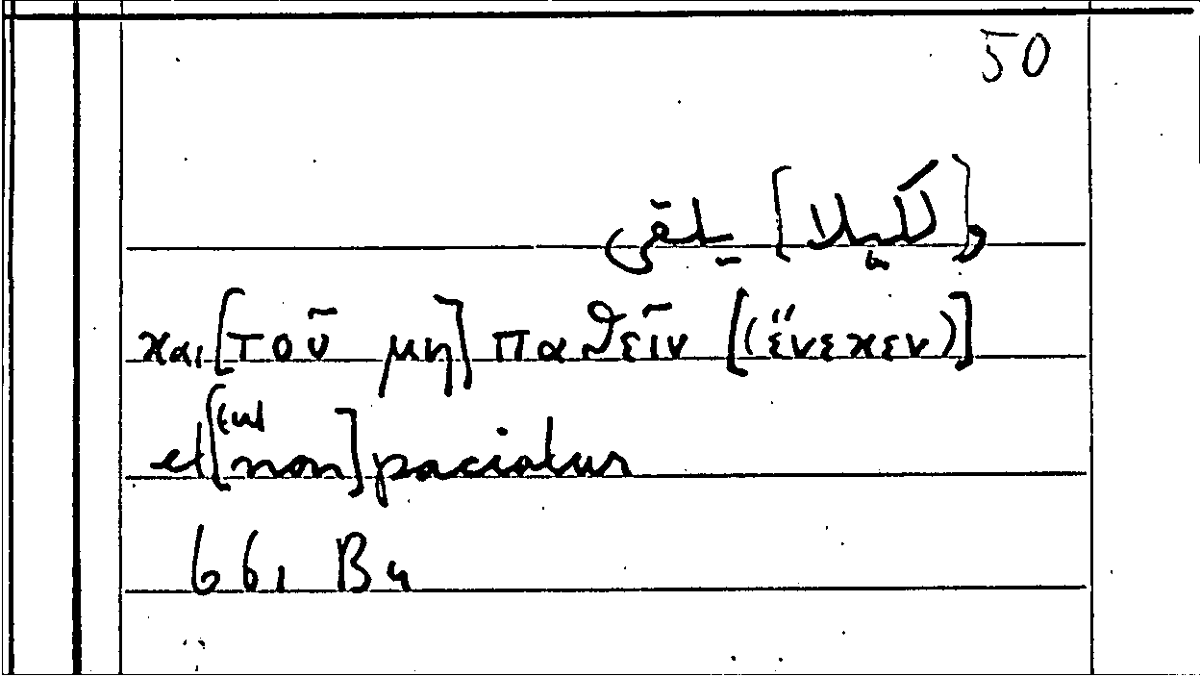 50
و[لكيلا] يلقى
και [τοῦ μη] παθεῖν [(ἕνεκεν)]
et [(ut) non] paciatur
661 B4